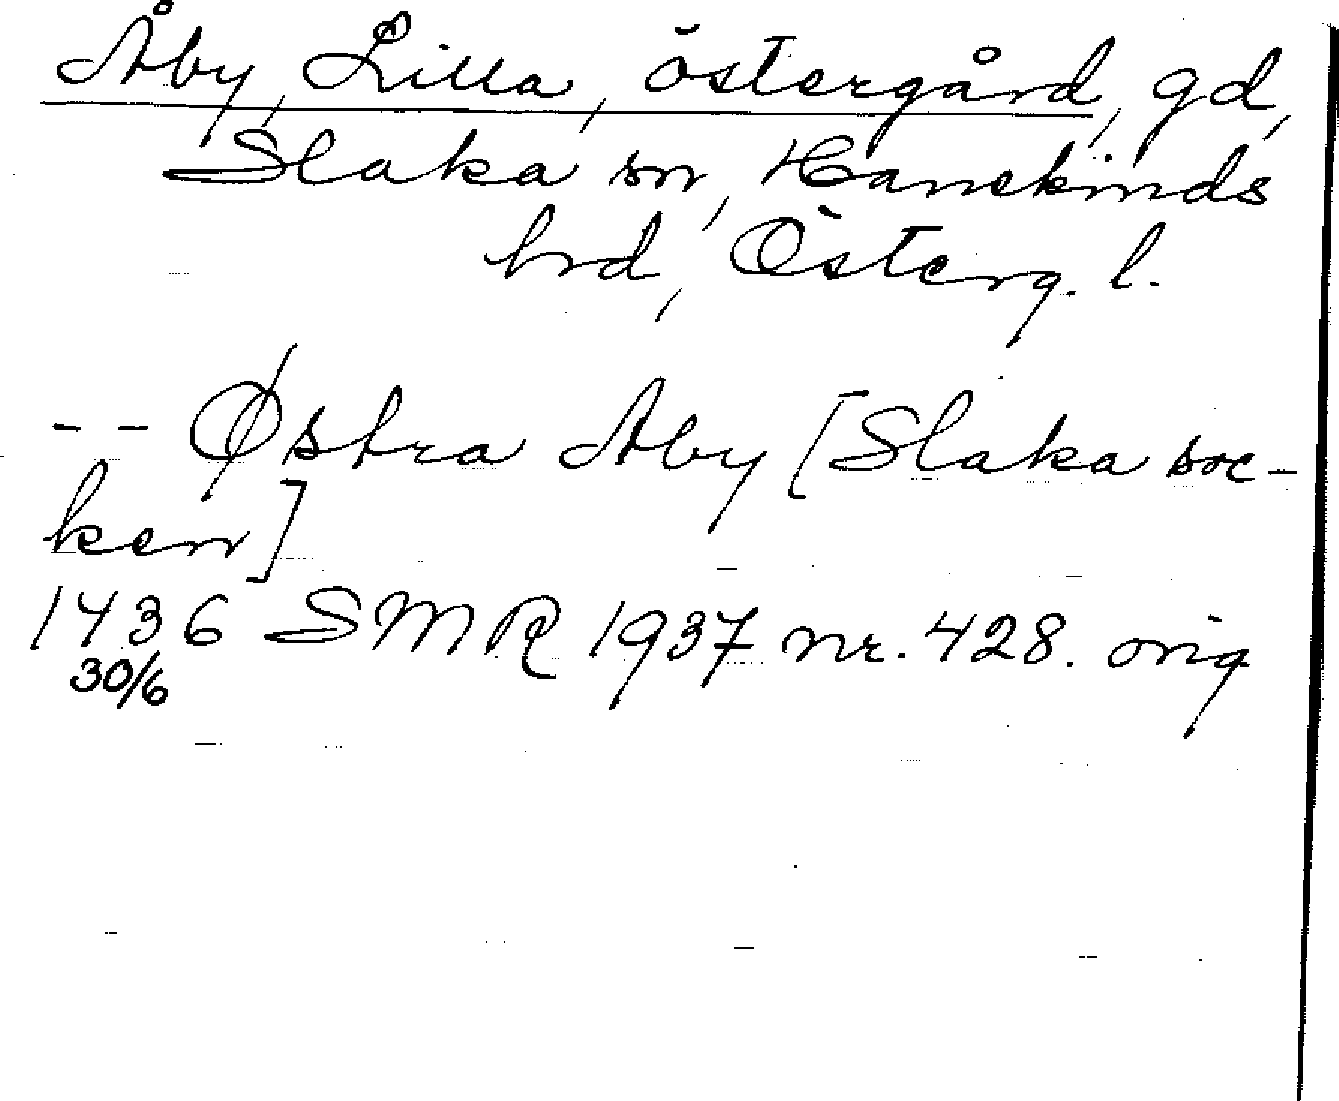 Åby, Lilla, östergård, gd,
Slaka sn, Hanekinds
hrd, Österg. l.
-- Østra Aby [Slaka soc-
ken]
1436 SMR 1937 nr. 428. orig
30/6